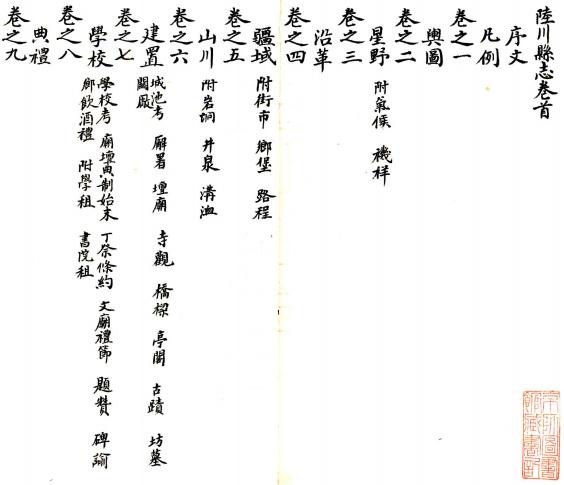 陸川縣志卷首
序文
凡例
卷之一
輿圖
卷之二
星野 附氣候 禨祥
卷之三
沿革
卷之四
疆域 附街市 鄉堡 路程
卷之五
山川 附岩峒 井泉 溝洫
卷之六
建置 城池考 廨署 壇廟 寺觀 橋樑 亭閣 古蹟 坊墓
閘廠
卷之七
學校 學校考 廟壇典制始末 丁祭條約 文廟禮節 題贊 碑諭
鄉飲酒禮 附學租 書院租
卷之八
典禮
卷之九